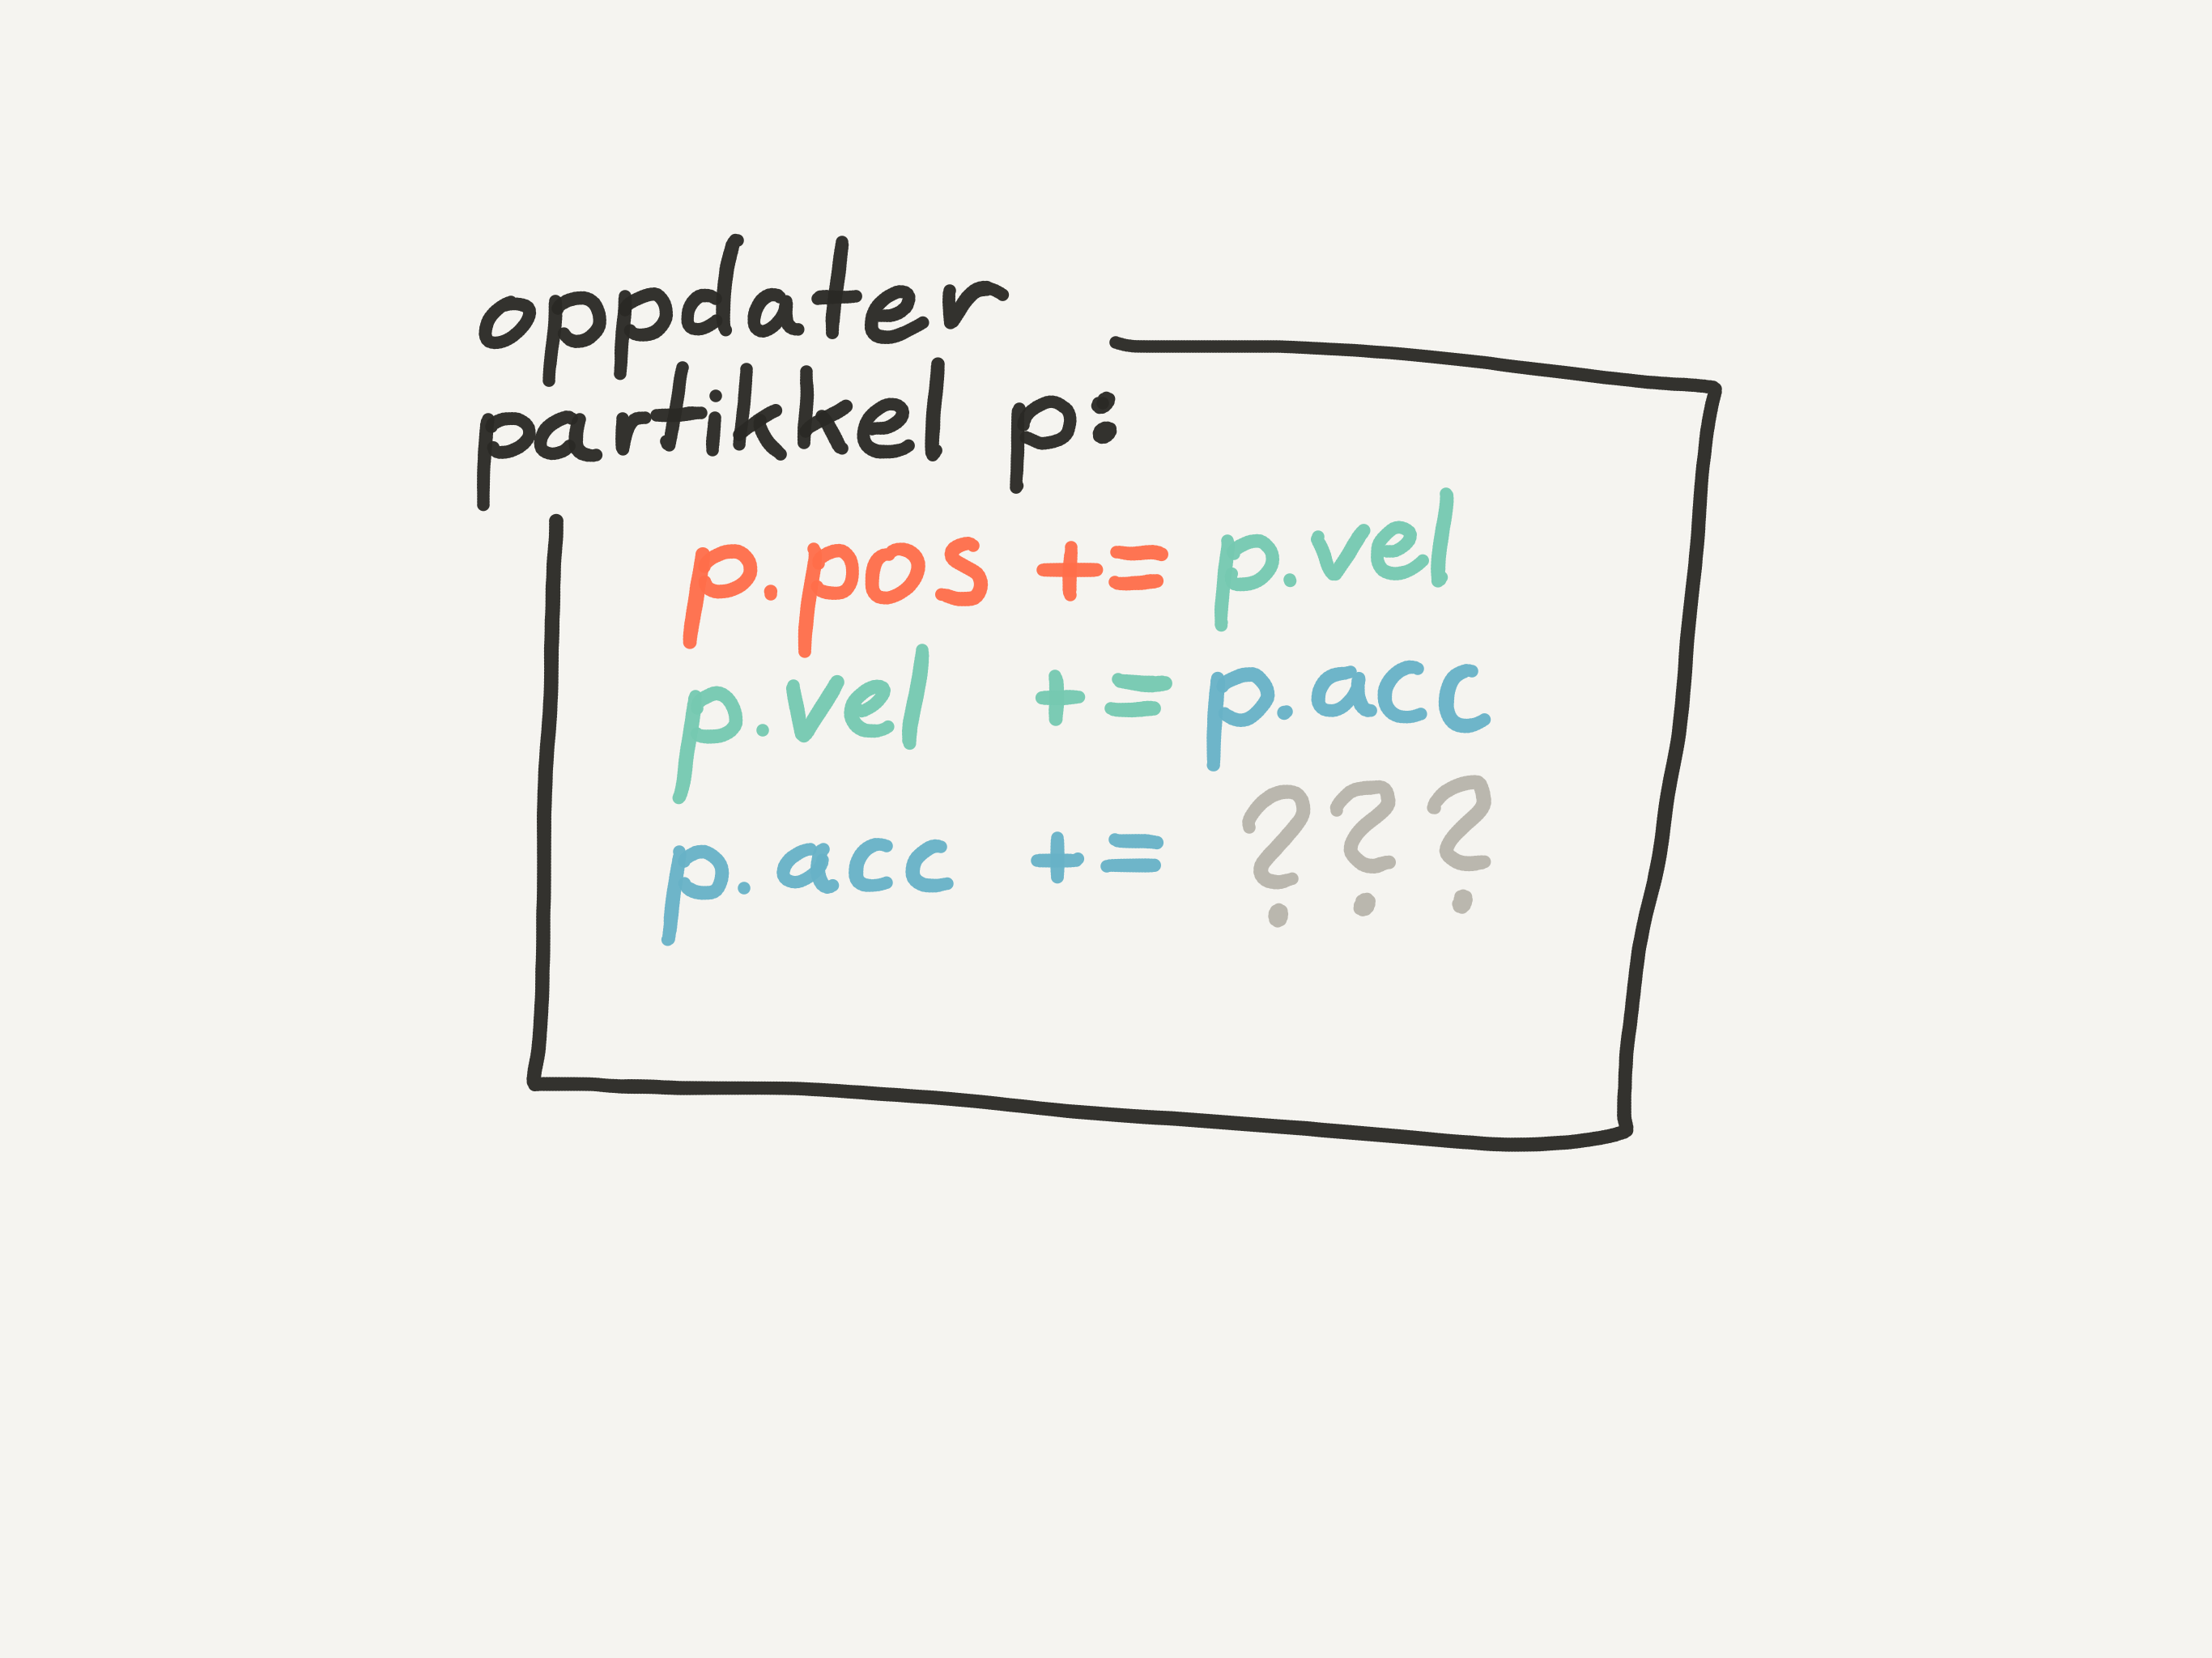 oppdater
partikkel p:
p.pos += p.vel
p.vel += p.acc
p.acc += ???